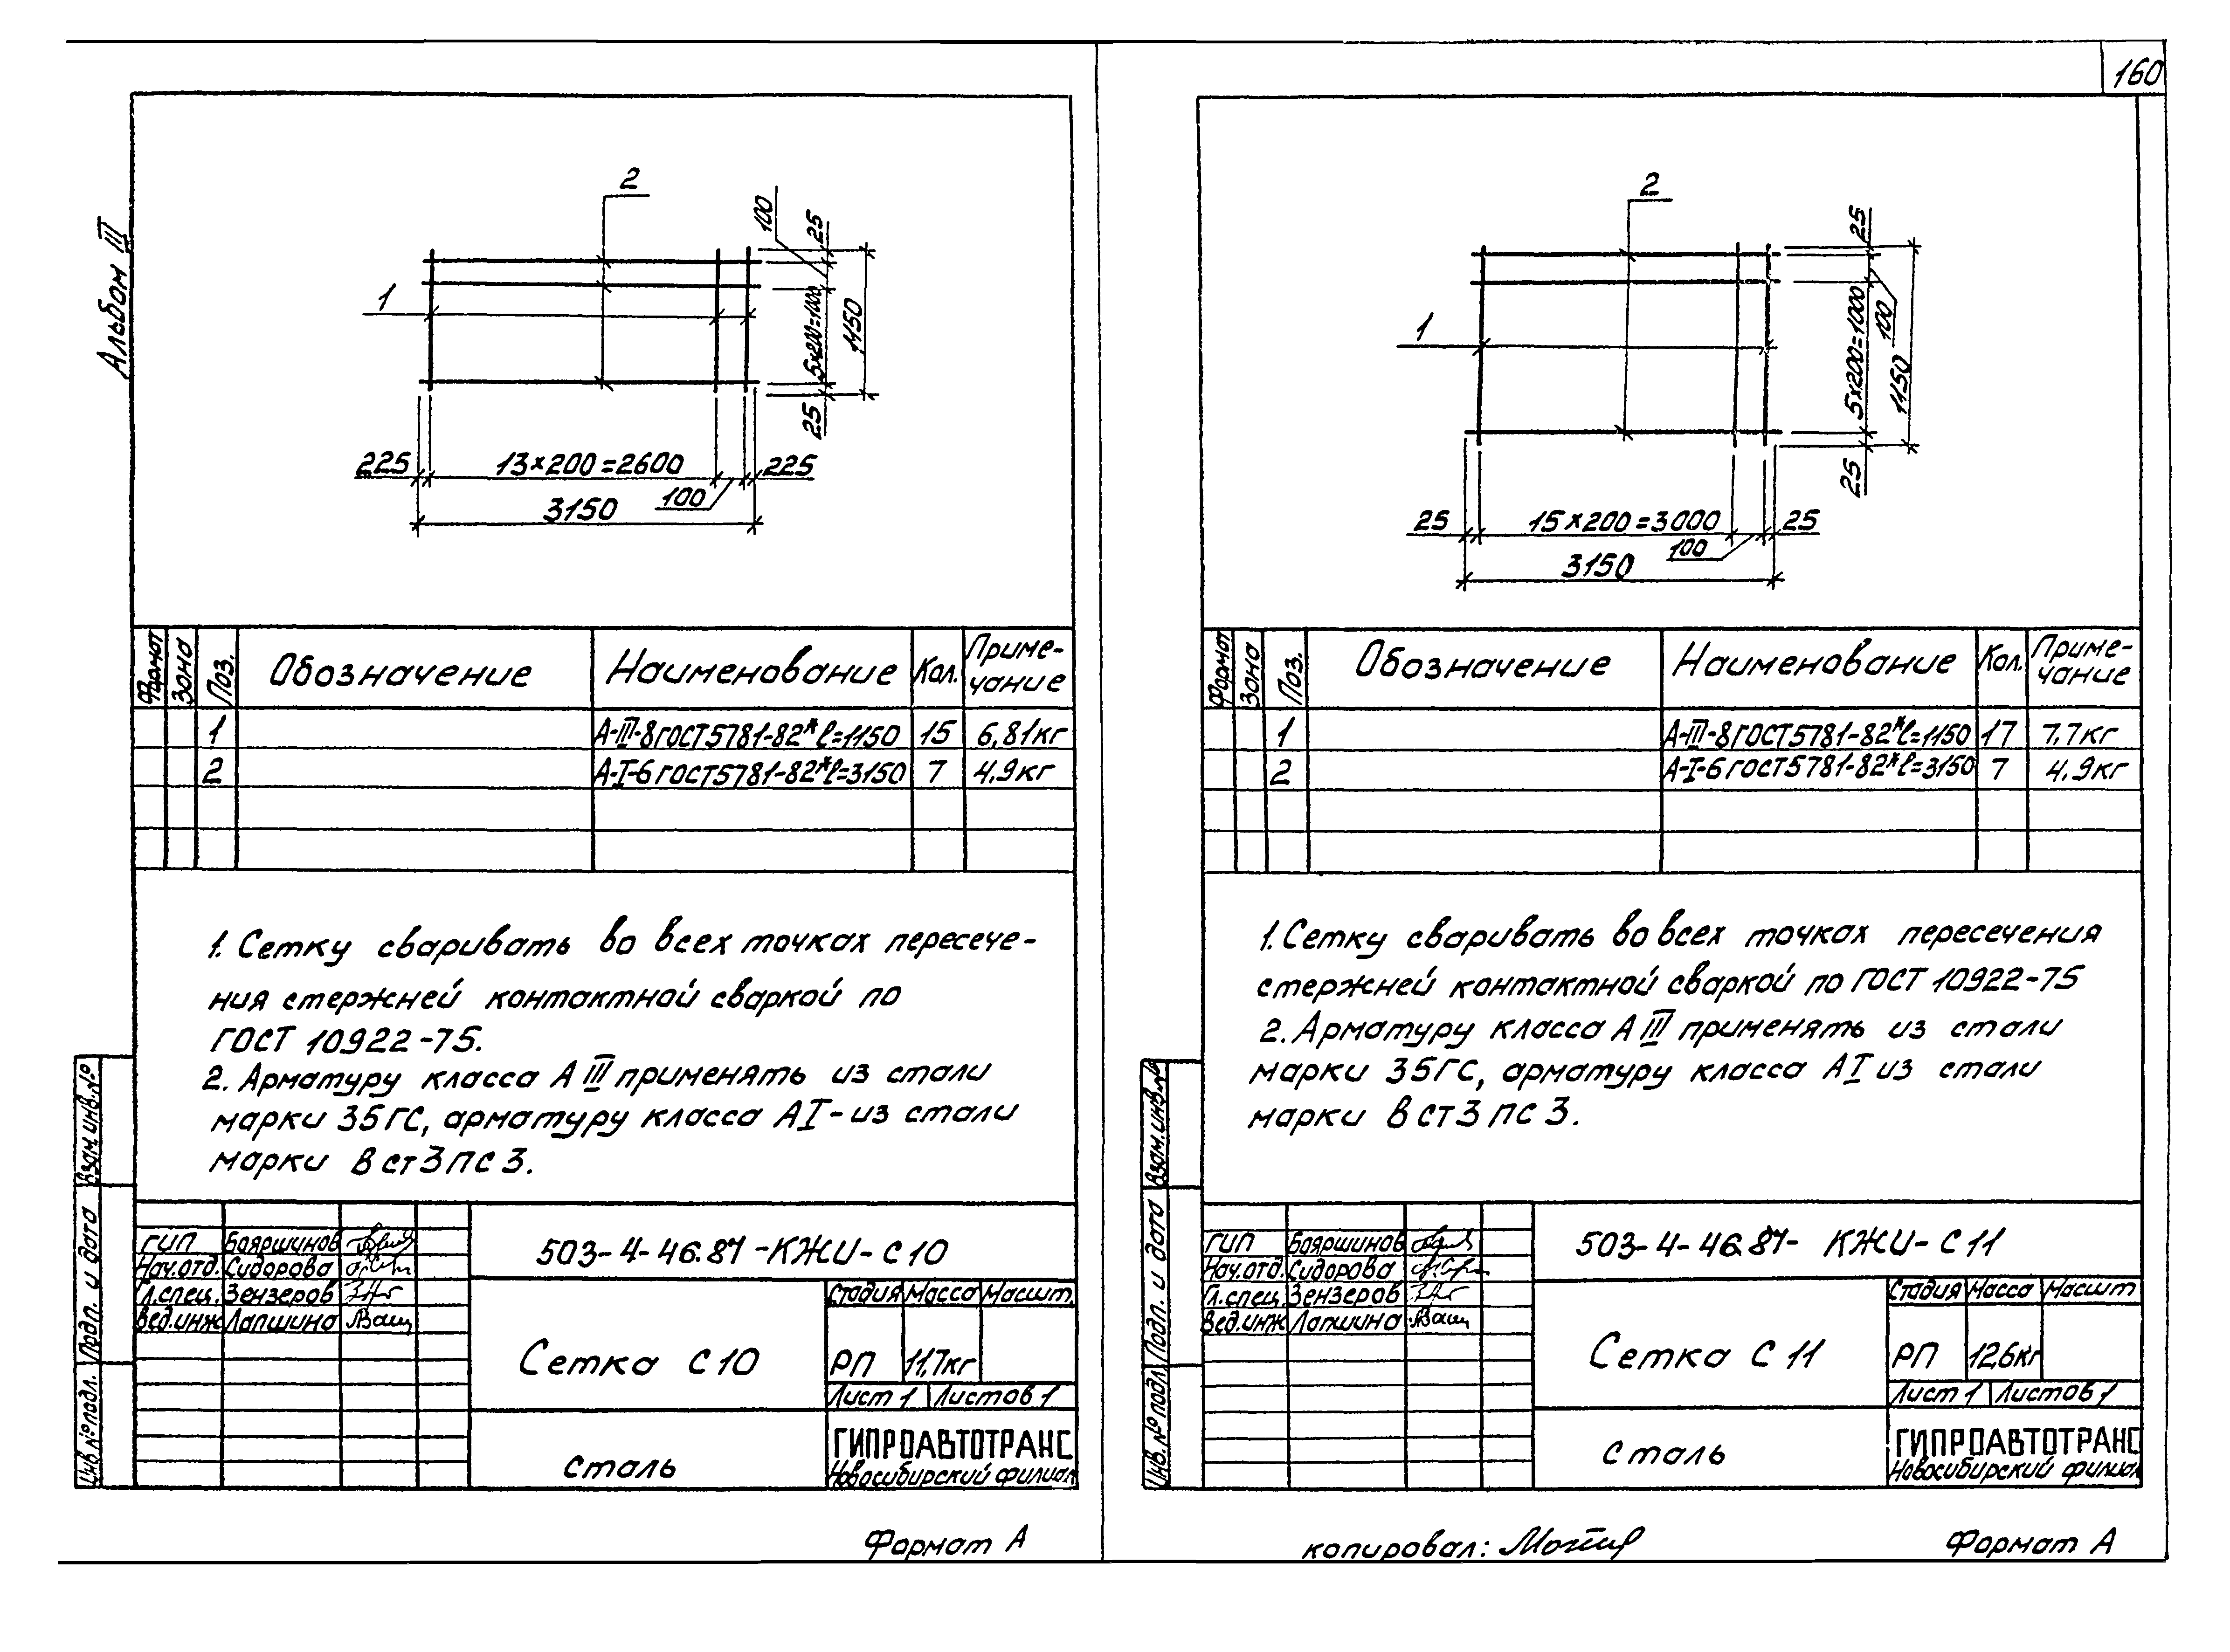 160
Альбом III
2
1
100
25
5×200=1000
1150
25
225
13×200=2600
225
100
3150
Формат
Зона
Поз.
Обозначение
Наименование
Кол.
Приме-
чание
1 А-III-8 ГОСТ 5781-82* ℓ=1150 15 6,81кг
2 А-I-6 ГОСТ 5781-82* ℓ=3150 7 4,9кг
1. Сетку сваривать во всех точках пересече-
ния стержней контактной сваркой по
ГОСТ 10922-75.
2. Арматуру класса А III применять из стали
марки 35ГС, арматуру класса АI - из стали
марки Вст3пс3.
Взам.инв.№
Подп. и дата
Инв.№подл.
ГИП Бояршинов
Нач.отд. Сидорова
Гл.спец. Зензеров
Вед.инж Лапшина
503-4-46.87-КЖИ-С10
Сетка С10
Стадия Масса Масшт.
РП 11,7кг
Лист 1 Листов 1
сталь
ГИПРОАВТОТРАНС
Новосибирский филиал
Формат А
2
1
25
100
5×200=1000
1150
25
25
15×200=3000
25
100
3150
Формат
Зона
Поз.
Обозначение
Наименование
Кол.
Приме-
чание
1 А-III-8 ГОСТ 5781-82* ℓ=1150 17 7,7кг
2 А-I-6 ГОСТ 5781-82* ℓ=3150 7 4,9кг
1. Сетку сваривать во всех точках пересечения
стержней контактной сваркой по ГОСТ 10922-75
2. Арматуру класса А III применять из стали
марки 35ГС, арматуру класса АI из стали
марки Вст3пс3.
Взам.инв.№
Подп. и дата
Инв.№подл
ГИП Бояршинов
Нач.отд. Сидорова
Гл.спец. Зензеров
Вед.инж Лапшина
503-4-46.87- КЖИ-С11
Сетка С11
Стадия Масса Масшт
РП 12,6кг
Лист 1 Листов 1
сталь
ГИПРОАВТОТРАНС
Новосибирский филиал
копировал:
Формат А